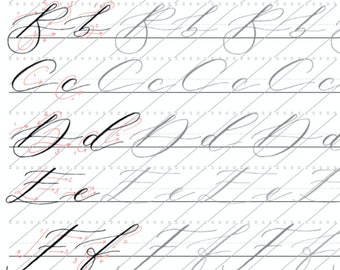 B b B b B b
C c C c C c C c
D d D d D d
E e E e E e E
F f F f F f